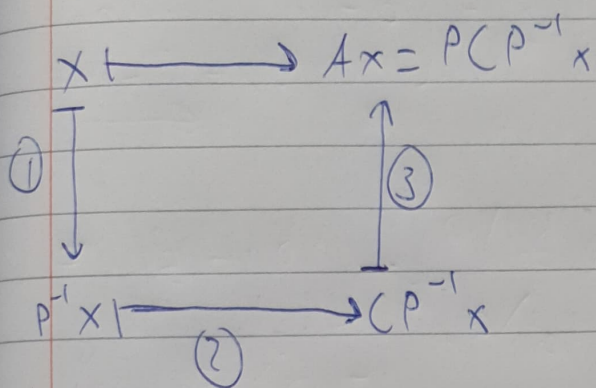 x ↦ Ax = PCP⁻¹x
① ③
P⁻¹x ↦ CP⁻¹x
②